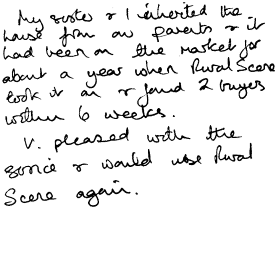 My sister & I inherited the
house from our parents & it
had been on the market for
about a year when Rural Scene
took it on & found 2 buyers
within 6 weeks.
V. pleased with the
service & would use Rural
Scene again.